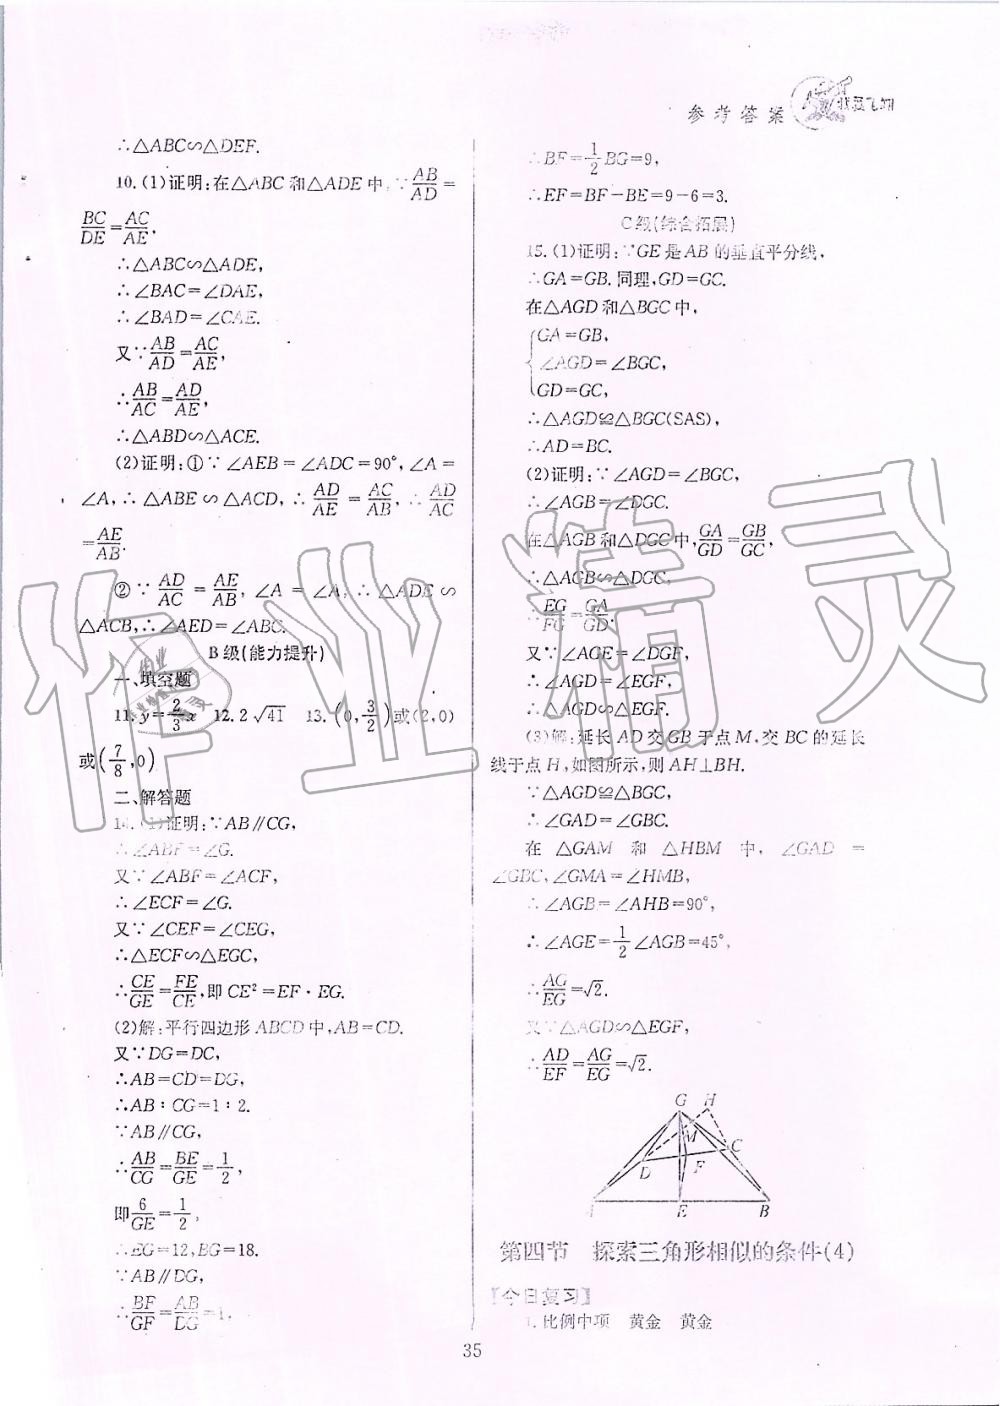 参考答案
∴△ABC∽△DEF.
10.(1)证明:在△ABC和△ADE中,∵AB/AD=
BC/DE=AC/AE,
∴△ABC∽△ADE,
∴∠BAC=∠DAE,
∴∠BAD=∠CAE.
又∵AB/AD=AC/AE,
∴AB/AC=AD/AE,
∴△ABD∽△ACE.
(2)证明:①∵∠AEB=∠ADC=90°,∠A=
∠A,∴△ABE∽△ACD,∴AD/AE=AC/AB,∴AD/AC
=AE/AB.
②∵AD/AC=AE/AB,∠A=∠A,∴△ADE∽
△ACB,∴∠AED=∠ABC.
B级(能力提升)
一、填空题
11.y=2/3x 12.2√41 13.(0,3/2)或(2,0)
或(7/8,0)
二、解答题
14.(1)证明:∵AB∥CG,
∴∠ABF=∠G.
又∵∠ABF=∠ACF,
∴∠ECF=∠G.
又∵∠CEF=∠CEG,
∴△ECF∽△EGC,
∴CE/GE=FE/CE,即CE²=EF·EG.
(2)解:平行四边形ABCD中,AB=CD.
又∵DG=DC,
∴AB=CD=DG,
∴AB∶CG=1∶2.
∵AB∥CG,
∴AB/CG=BE/GE=1/2,
即6/GE=1/2,
∴EG=12,BG=18.
∵AB∥DG,
∴BF/GF=AB/DG=1,
∴BF=1/2BG=9,
∴EF=BF-BE=9-6=3.
C级(综合拓展)
15.(1)证明:∵GE是AB的垂直平分线,
∴GA=GB.同理,GD=GC.
在△AGD和△BGC中,
GA=GB,
∠AGD=∠BGC,
GD=GC,
∴△AGD≌△BGC(SAS),
∴AD=BC.
(2)证明:∵∠AGD=∠BGC,
∴∠AGB=∠DGC.
在△AGB和△DGC中,GA/GD=GB/GC,
∴△AGB∽△DGC,
∴EG/FG=GA/GD.
又∵∠AGE=∠DGF,
∴∠AGD=∠EGF,
∴△AGD∽△EGF.
(3)解:延长AD交GB于点M,交BC的延长
线于点H,如图所示,则AH⊥BH.
∵△AGD≌△BGC,
∴∠GAD=∠GBC.
在△GAM和△HBM中,∠GAD=
∠GBC,∠GMA=∠HMB,
∴∠AGB=∠AHB=90°,
∴∠AGE=1/2∠AGB=45°,
∴AG/EG=√2.
又∵△AGD∽△EGF,
∴AD/EF=AG/EG=√2.
G H
M
C
D F
A E B
第四节 探索三角形相似的条件(4)
【今日复习】
1.比例中项 黄金 黄金
35
作业精灵